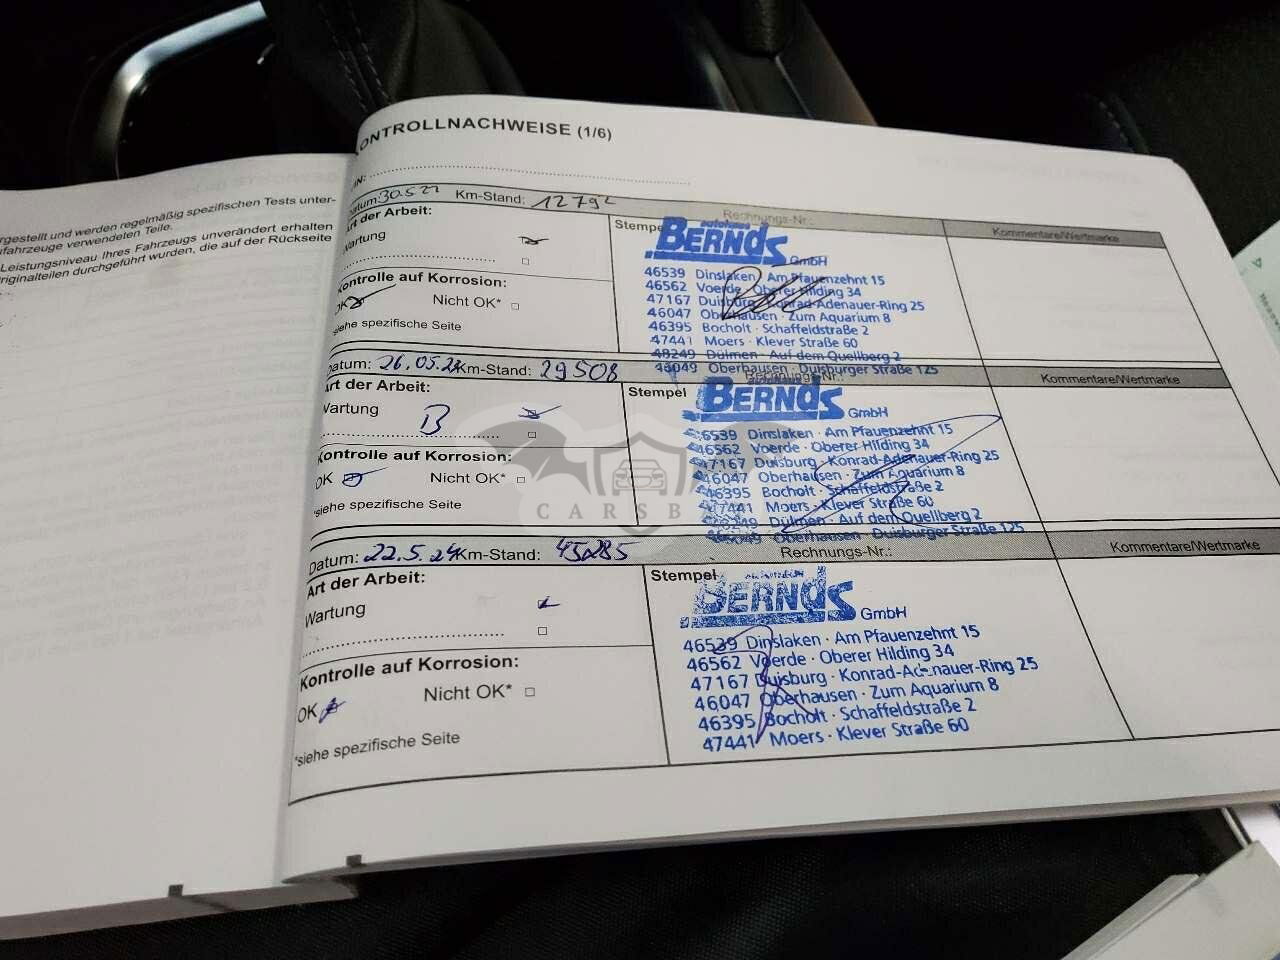 KONTROLLNACHWEISE (1/6)
rgestellt und werden regelmäßig spezifischen Tests unter-
fahrzeuge verwendeten Teile.
Leistungsniveau Ihres Fahrzeugs unverändert erhalten
riginalteilen durchgeführt wurden, die auf der Rückseite
Datum: 30.5.22 Km-Stand: 12792 Rechnungs-Nr.: Kommentare/Wertmarke
Art der Arbeit:
Wartung
Kontrolle auf Korrosion:
OK Nicht OK*
*siehe spezifische Seite
Stempel
autohaus
BERNDS GmbH
46539 Dinslaken · Am Pfauenzehnt 15
46562 Voerde · Oberer Hilding 34
47167 Duisburg · Konrad-Adenauer-Ring 25
46047 Oberhausen · Zum Aquarium 8
46395 Bocholt · Schaffeldstraße 2
47441 Moers · Klever Straße 60
48249 Dülmen · Auf dem Quellberg 2
46049 Oberhausen · Duisburger Straße 125
Datum: 26.05.23 Km-Stand: 29508 Rechnungs-Nr.: Kommentare/Wertmarke
Art der Arbeit:
Wartung B
Kontrolle auf Korrosion:
OK Nicht OK*
*siehe spezifische Seite
Stempel
BERNDS GmbH
46539 Dinslaken · Am Pfauenzehnt 15
46562 Voerde · Oberer Hilding 34
47167 Duisburg · Konrad-Adenauer-Ring 25
46047 Oberhausen · Zum Aquarium 8
46395 Bocholt · Schaffeldstraße 2
47441 Moers · Klever Straße 60
48249 Dülmen · Auf dem Quellberg 2
46049 Oberhausen · Duisburger Straße 125
Datum: 22.5.24 Km-Stand: 45285 Rechnungs-Nr.: Kommentare/Wertmarke
Art der Arbeit:
Wartung
Kontrolle auf Korrosion:
OK Nicht OK*
*siehe spezifische Seite
Stempel
BERNDS GmbH
46539 Dinslaken · Am Pfauenzehnt 15
46562 Voerde · Oberer Hilding 34
47167 Duisburg · Konrad-Adenauer-Ring 25
46047 Oberhausen · Zum Aquarium 8
46395 Bocholt · Schaffeldstraße 2
47441 Moers · Klever Straße 60